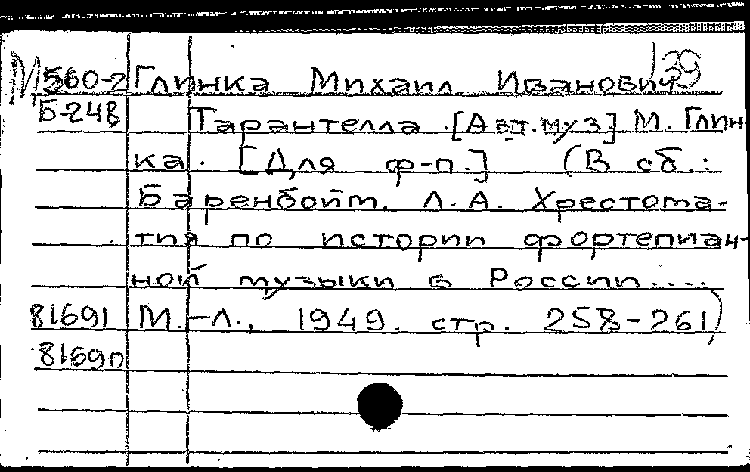 М560-2 Глинка Михаил Иванович 139
Б-24в Тарантелла. [Авт. муз.] М. Глин-
ка. [Для ф-п.] (В сб.:
Баренбойм. Л.А. Хрестома-
тия по истории фортепиан-
ной музыки в России....
81691 М.-Л., 1949. стр. 258-261)
8169п